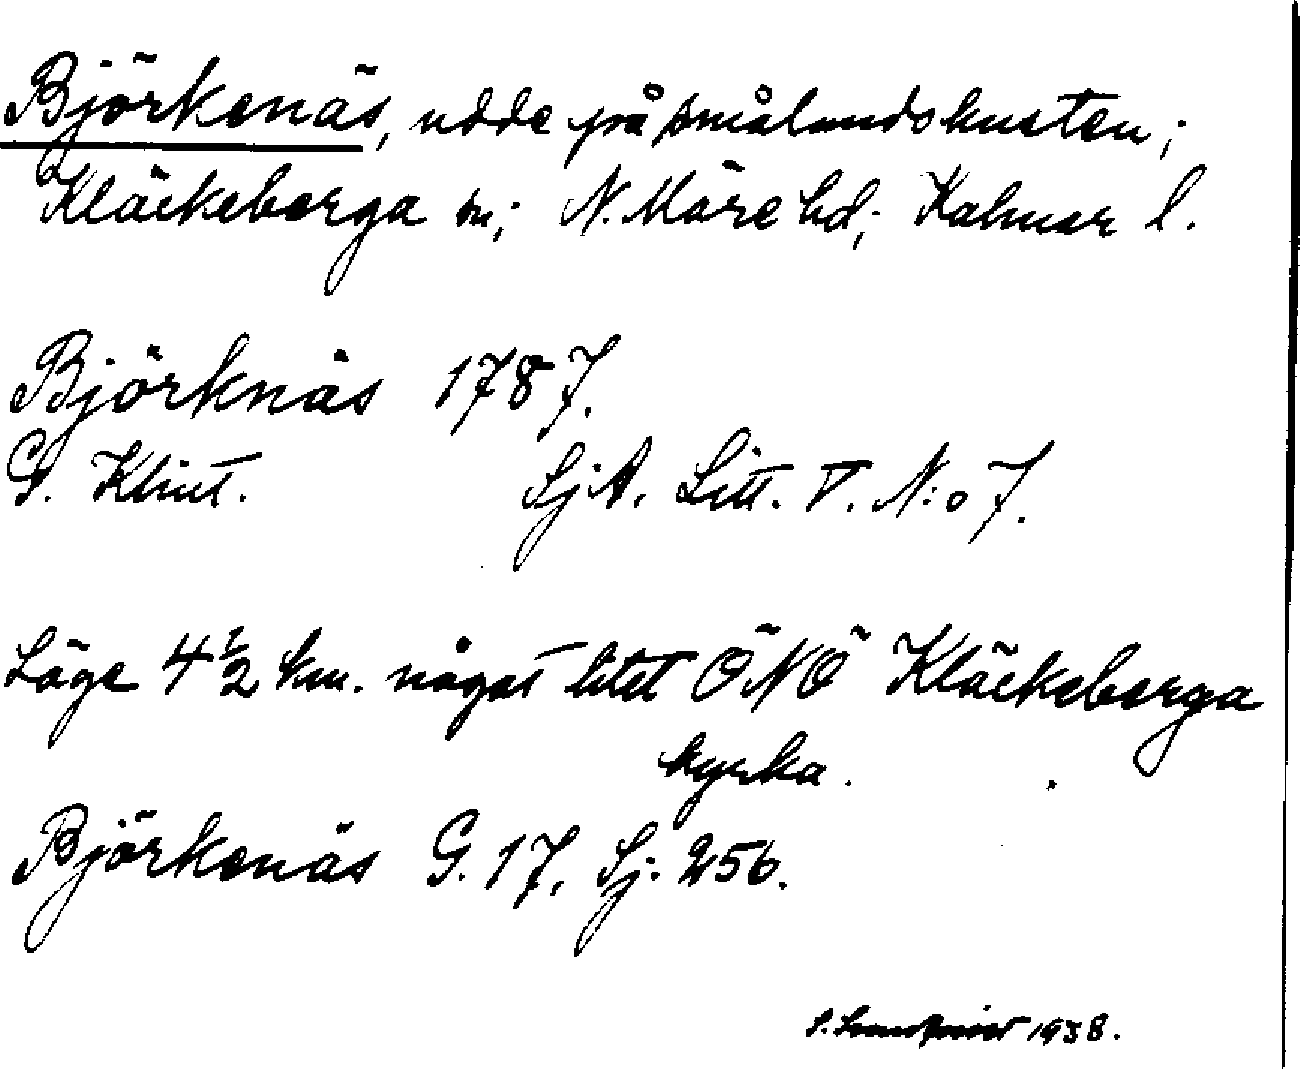 Björkenäs, udde på smålandskusten;
Kläckeberga sn; N. Möre hd; Kalmar l.
Björknäs 1787.
G. Klint. SjA. Litt. V. N:o 7.
Läge 4½ km. något litet ÖNÖ Kläckeberga
kyrka.
Björkenäs G. 17, Sj. 256.
1938.